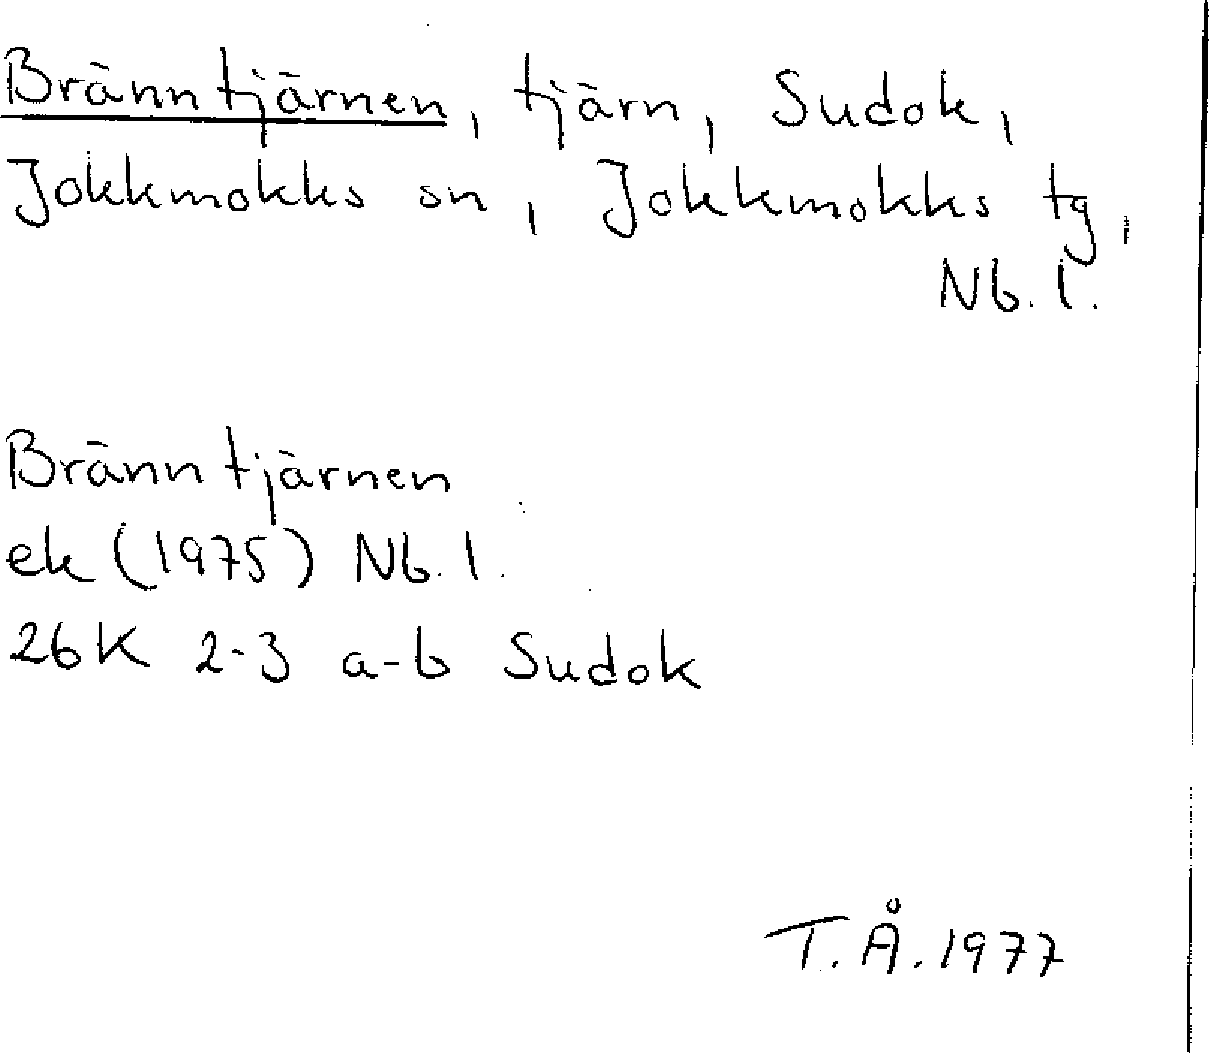 Bränntjärnen, tjärn, Sudok,
Jokkmokks sn, Jokkmokks tg,
Nb. l.
Bränntjärnen
ek (1975) Nb. l.
26K 2-3 a-b Sudok
T. Å. 1977